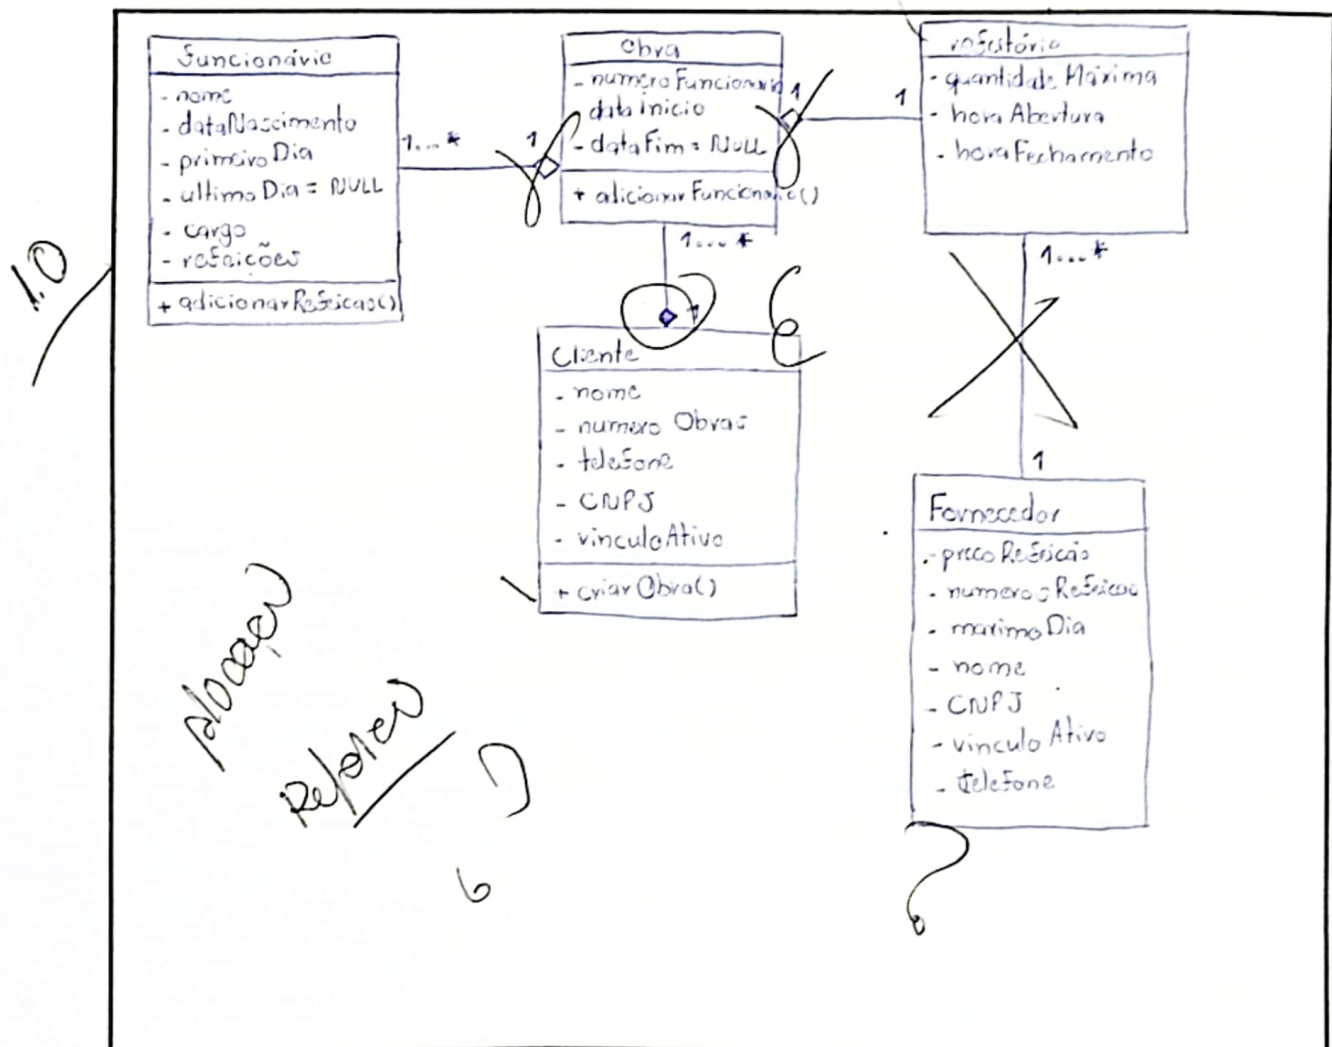 Funcionário
- nome
- dataNascimento
- primeiroDia
- ultimoDia = NULL
- cargo
- refeições
+ adicionarRefeicao()
1...*
1
Obra
- numeroFuncionario
- dataInicio
- dataFim = NULL
+ adicionarFuncionario()
1
1
refeitório
- quantidadeMáxima
- horaAbertura
- horaFechamento
1...*
1
1...*
1
Cliente
- nome
- numero Obras
- telefone
- CNPJ
- vinculoAtivo
+ criarObra()
Fornecedor
- precoRefeicão
- numerosRefeicao
- maximoDia
- nome
- CNPJ
- vinculo Ativo
- telefone
1.0
?